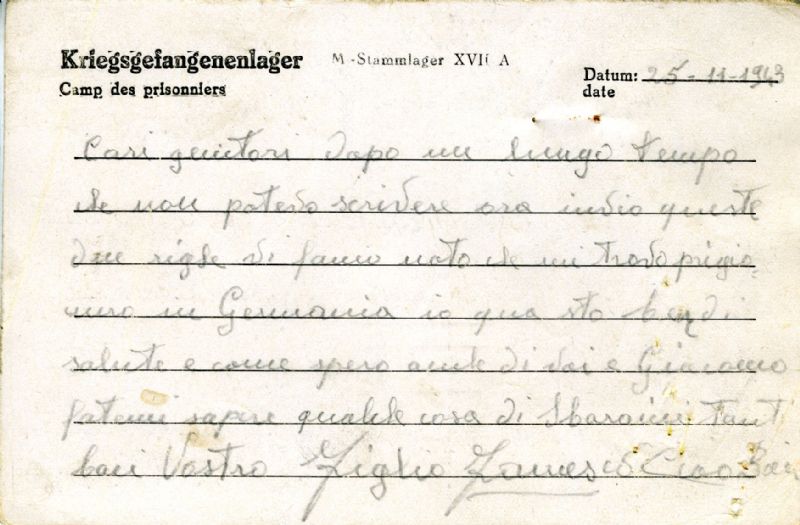 Kriegsgefangenenlager M-Stammlager XVII A
Camp des prisonniers
Datum: 25-11-1943
date
Cari genitori dopo un lungo tempo
che non potevo scrivere ora invio queste
due righe vi fanno noto che mi trovo prigio-
niero in Germania io qua sto ben di
salute e come spero anche di voi e Giacomo
fatemi sapere qualche cosa di tanti
baci Vostro Figlio Ciao Baci